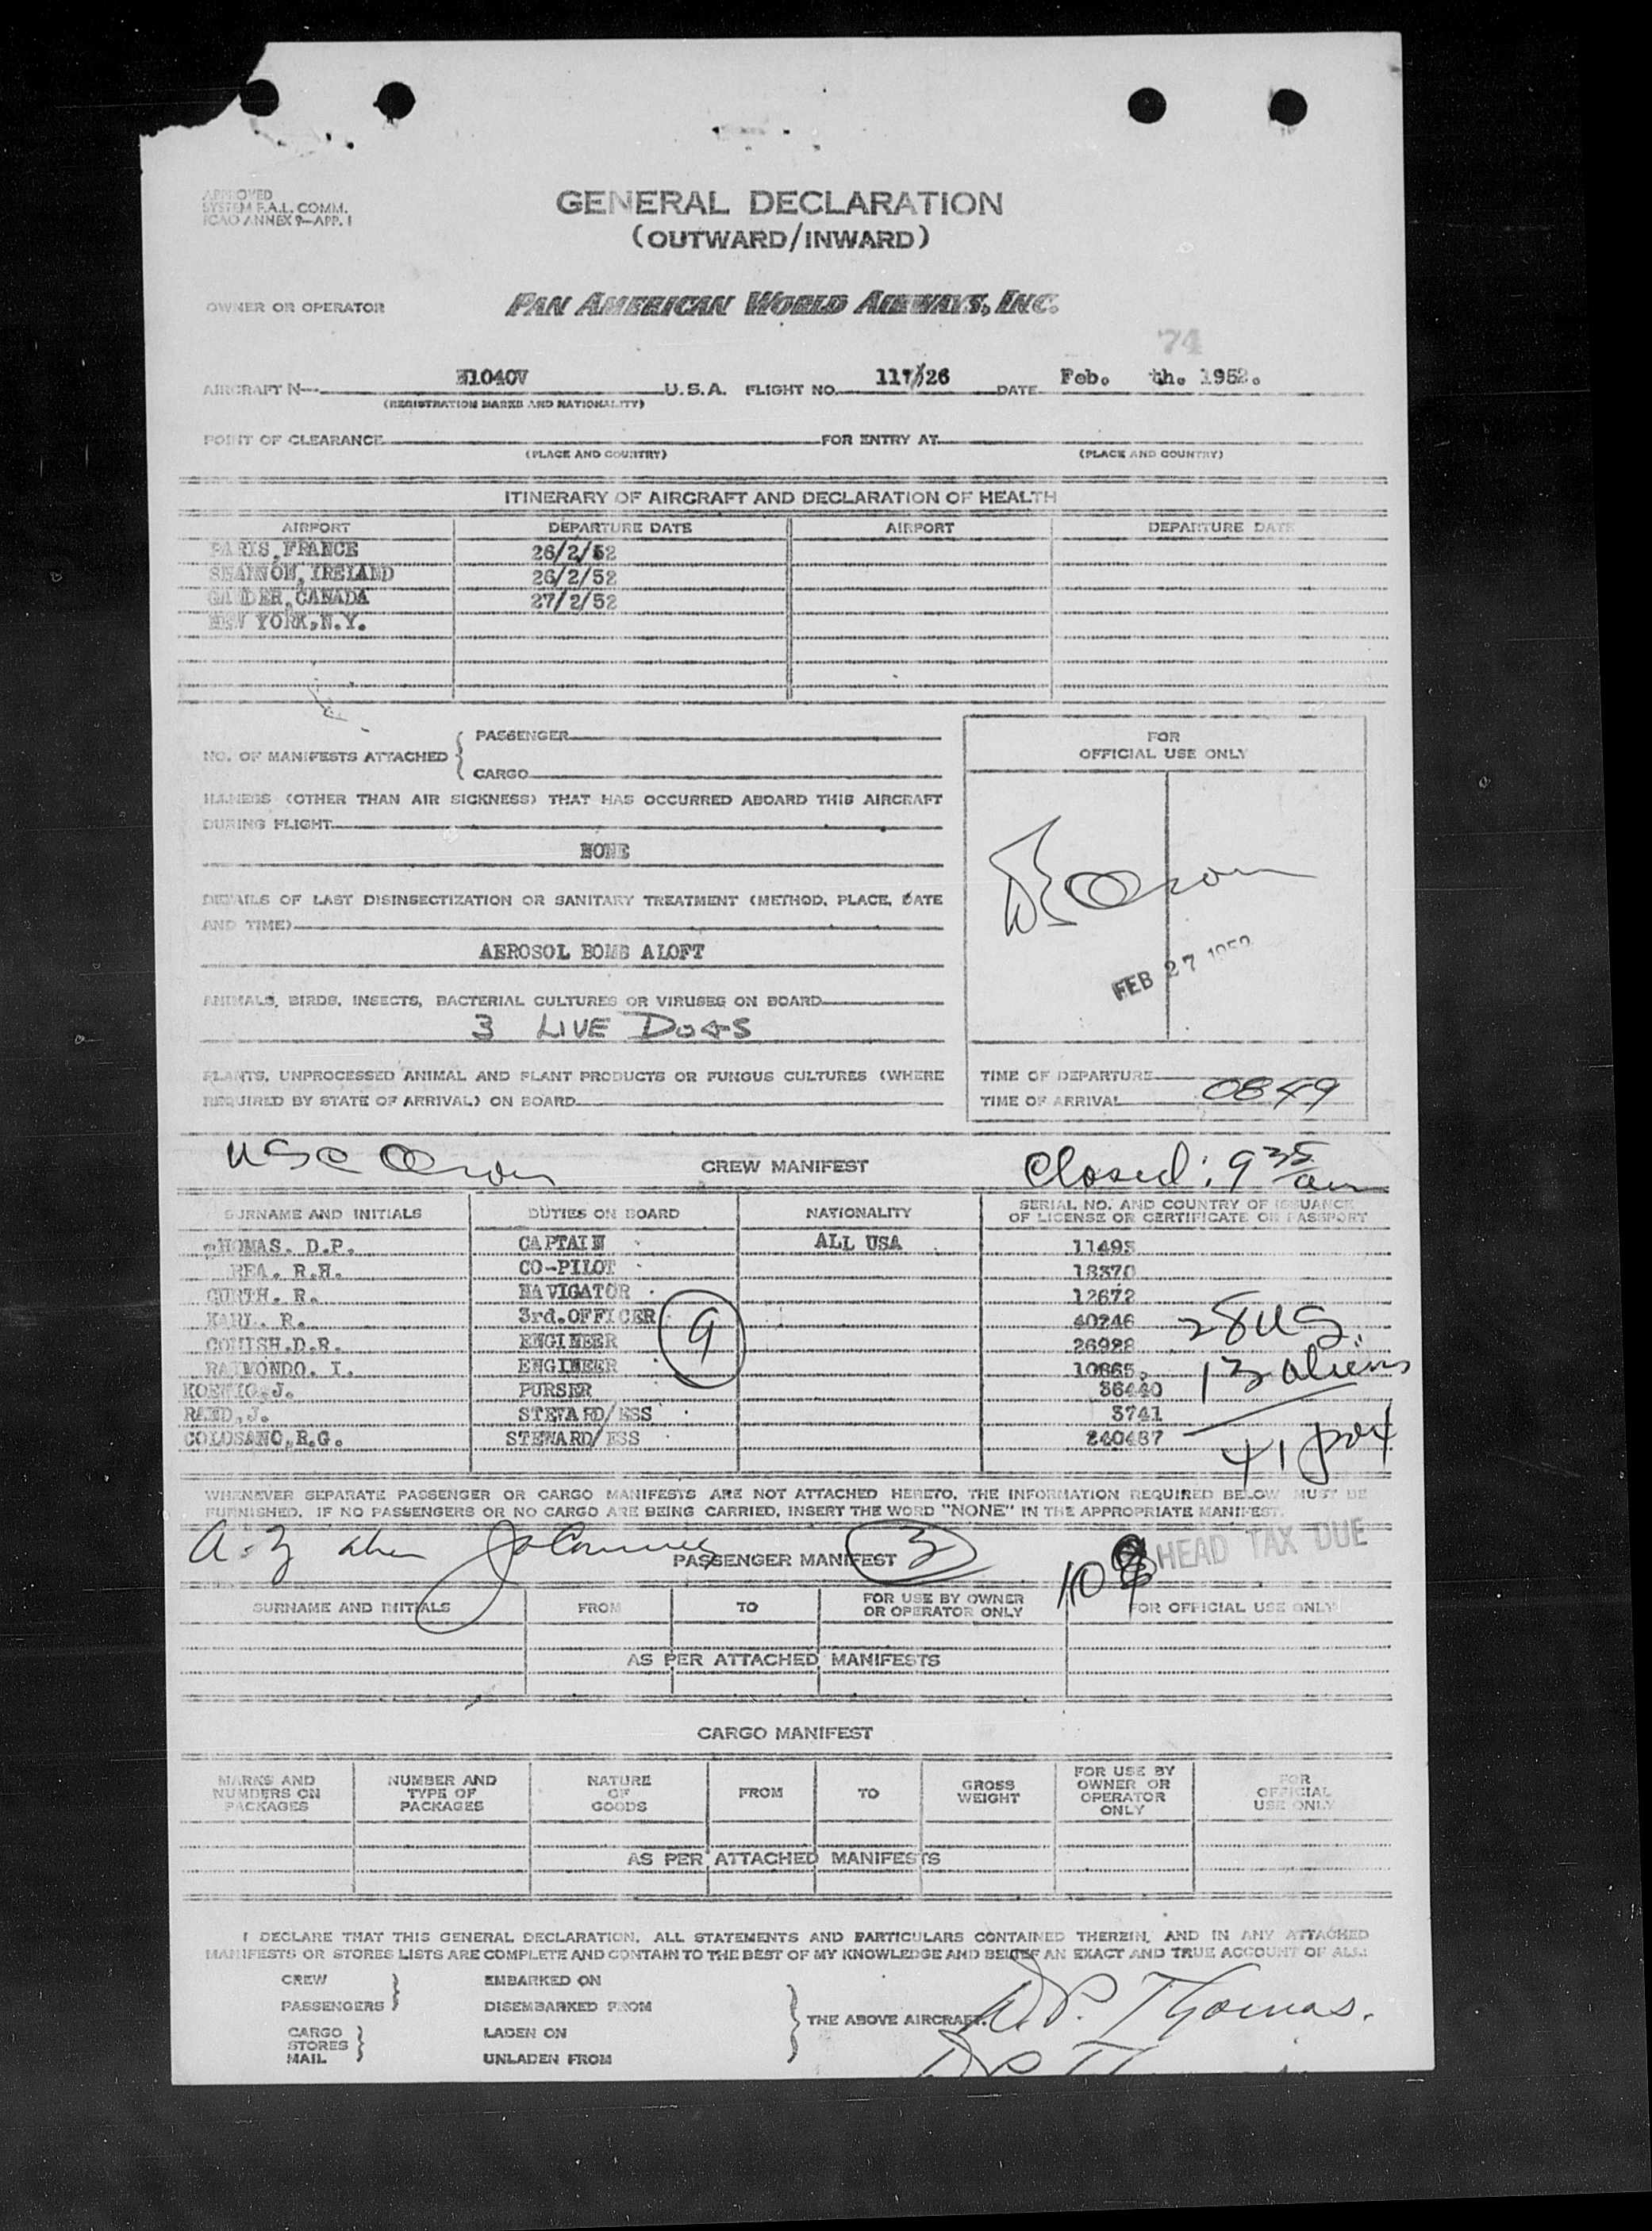 APPROVED
SYSTEM F.A.L. COMM.
ICAO ANNEX 9—APP. I
GENERAL DECLARATION
(OUTWARD/INWARD)
OWNER OR OPERATOR PAN AMERICAN WORLD AIRWAYS, INC.
74
AIRCRAFT N N1040V U.S.A. FLIGHT NO. 117/26 DATE Feb. th. 1952.
(REGISTRATION MARKS AND NATIONALITY)
POINT OF CLEARANCE FOR ENTRY AT
(PLACE AND COUNTRY) (PLACE AND COUNTRY)
ITINERARY OF AIRCRAFT AND DECLARATION OF HEALTH
AIRPORT DEPARTURE DATE AIRPORT DEPARTURE DATE
PARIS, FRANCE 26/2/52
SHANNON, IRELAND 26/2/52
GANDER, CANADA 27/2/52
NEW YORK, N.Y.
NO. OF MANIFESTS ATTACHED { PASSENGER
CARGO
FOR
OFFICIAL USE ONLY
ILLNESS (OTHER THAN AIR SICKNESS) THAT HAS OCCURRED ABOARD THIS AIRCRAFT
DURING FLIGHT
NONE
DETAILS OF LAST DISINSECTIZATION OR SANITARY TREATMENT (METHOD, PLACE, DATE
AND TIME)
AEROSOL BOMB ALOFT
FEB 27 1952
ANIMALS, BIRDS, INSECTS, BACTERIAL CULTURES OR VIRUSES ON BOARD
3 LIVE DOGS
PLANTS, UNPROCESSED ANIMAL AND PLANT PRODUCTS OR FUNGUS CULTURES (WHERE
REQUIRED BY STATE OF ARRIVAL) ON BOARD
TIME OF DEPARTURE
TIME OF ARRIVAL 0849
CREW MANIFEST Closed: 9 35 am
SURNAME AND INITIALS DUTIES ON BOARD NATIONALITY SERIAL NO. AND COUNTRY OF ISSUANCE
OF LICENSE OR CERTIFICATE OR PASSPORT
THOMAS. D.P. CAPTAIN ALL USA 11493
REA. R.H. CO-PILOT 18370
CURTH. R. NAVIGATOR 12672
KARL. R. 3rd. OFFICER 40246
COHISH. D.R. ENGINEER 26928
RAIMONDO. I. ENGINEER 10865
KOENIG, J. PURSER 36440
RAND, J. STEWARD/ESS 3741
COLOSANO, R.G. STEWARD/ESS 240487
9
28 US
13 aliens
41 pax
WHENEVER SEPARATE PASSENGER OR CARGO MANIFESTS ARE NOT ATTACHED HERETO, THE INFORMATION REQUIRED BELOW MUST BE
FURNISHED. IF NO PASSENGERS OR NO CARGO ARE BEING CARRIED, INSERT THE WORD "NONE" IN THE APPROPRIATE MANIFEST.
PASSENGER MANIFEST 3 HEAD TAX DUE
SURNAME AND INITIALS FROM TO FOR USE BY OWNER
OR OPERATOR ONLY FOR OFFICIAL USE ONLY
AS PER ATTACHED MANIFESTS
CARGO MANIFEST
MARKS AND
NUMBERS ON
PACKAGES NUMBER AND
TYPE OF
PACKAGES NATURE
OF
GOODS FROM TO GROSS
WEIGHT FOR USE BY
OWNER OR
OPERATOR
ONLY FOR
OFFICIAL
USE ONLY
AS PER ATTACHED MANIFESTS
I DECLARE THAT THIS GENERAL DECLARATION, ALL STATEMENTS AND PARTICULARS CONTAINED THEREIN, AND IN ANY ATTACHED
MANIFESTS OR STORES LISTS ARE COMPLETE AND CONTAIN TO THE BEST OF MY KNOWLEDGE AND BELIEF AN EXACT AND TRUE ACCOUNT OF ALL:
CREW EMBARKED ON
PASSENGERS DISEMBARKED FROM
CARGO LADEN ON
STORES
MAIL UNLADEN FROM
THE ABOVE AIRCRAFT. D.P. Thomas.